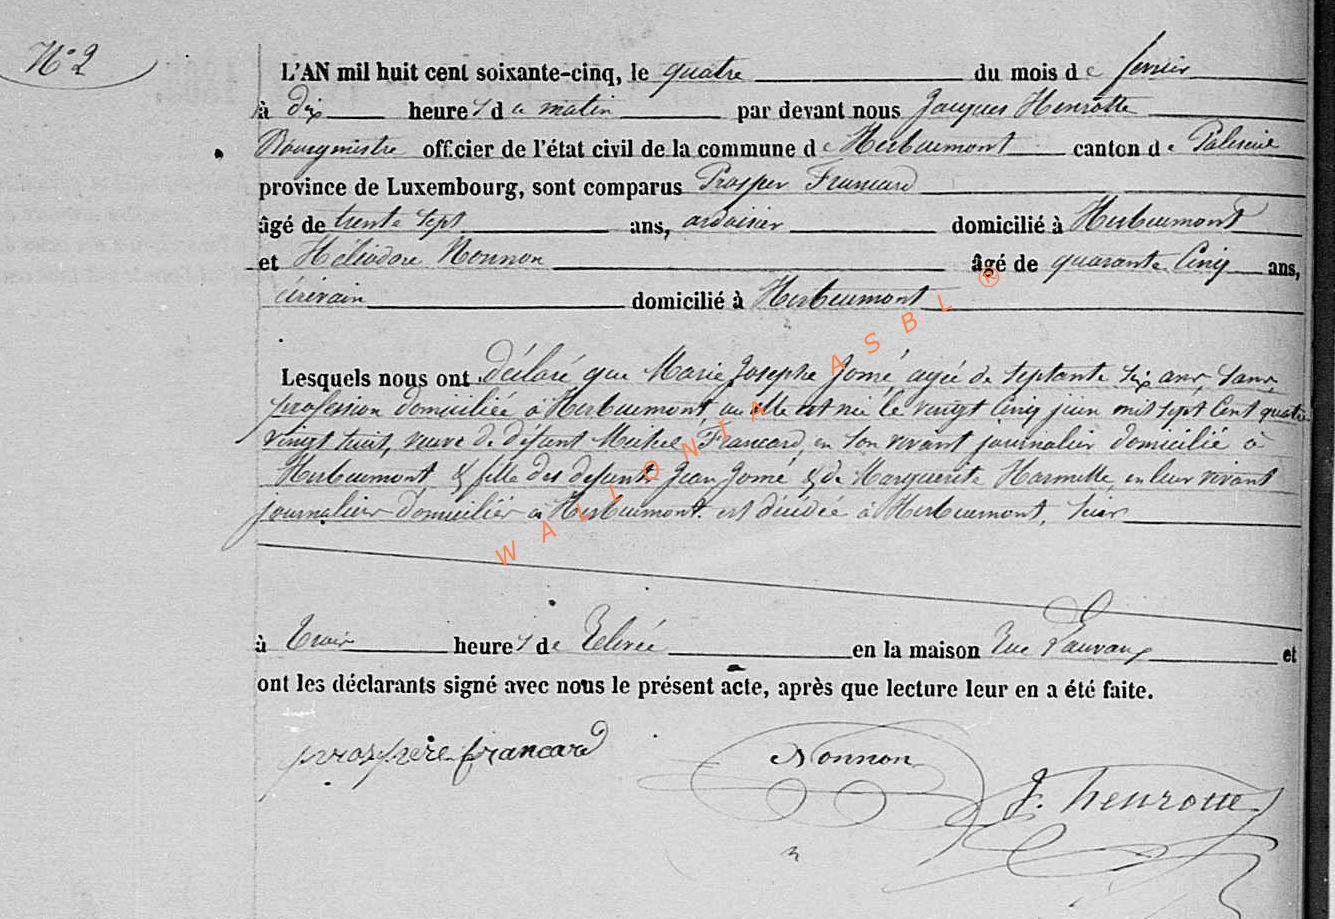 N° 2
L'AN mil huit cent soixante-cinq, le quatre du mois de fevrier
à dix heures du matin par devant nous Jacques Henrotte
Bourgmistre officier de l'état civil de la commune de Herbeumont canton de Paliseul
province de Luxembourg, sont comparus Prosper Francard
âgé de trente sept ans, ardoisier domicilié à Herbeumont
et Héliodore Nonnon âgé de quarante Cinq ans,
écrivain domicilié à Herbeumont
Lesquels nous ont déclaré que Marie Josephe Jomé agée de septante six ans, sans
profession domiciliée à Herbeumont, ou elle est née le vingt cinq juin mil sept cent quatre
vingt huit, veuve de défunt Michel Francard, en son vivant journalier domicilié à
Herbeumont & fille des defunts Jean Jomé & de Marguerite Harmelle, en leur vivant
journalier domicilier à Herbeumont. est décédée à Herbeumont, hier
à trois heures de Relevée en la maison Rue Lauvaux et
ont les déclarants signé avec nous le présent acte, après que lecture leur en a été faite.
prospère francard Nonnon
J. henrotte
WALLONIA ASBL ®